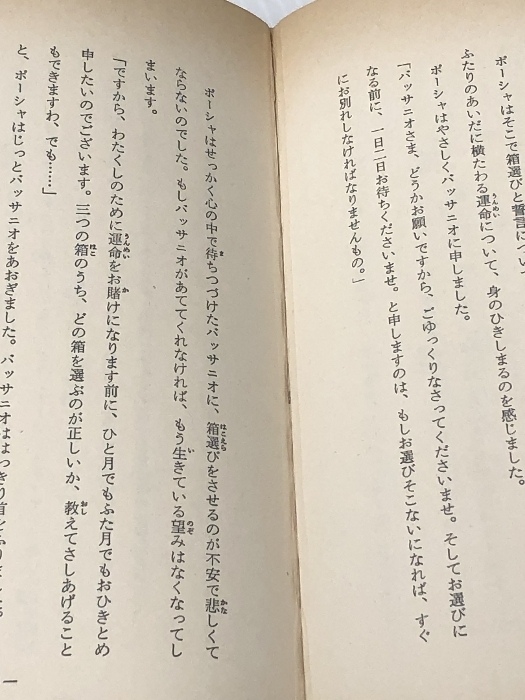 ポーシャはそこで箱選びと誓言につい
ふたりのあいだに横たわる運命について、身のひきしまるのを感じました。
ポーシャはやさしくバッサニオに申しました。
「バッサニオさま、どうかお願いですから、ごゆっくりなさってくださいませ。そしてお選びに
なる前に、一日二日お待ちくださいませ。と申しますのは、もしお選びそこないになれば、すぐ
にお別れしなければなりませんもの。」
ポーシャはせっかく心の中で待ちつづけたバッサニオに、箱選びをさせるのが不安で悲しくて
ならないのでした。もしバッサニオがあててくれなければ、もう生きている望みはなくなってし
まいます。
「ですから、わたくしのために運命をお賭けになります前に、ひと月でもふた月でもおひきとめ
申したいのでございます。三つの箱のうち、どの箱を選ぶのが正しいか、教えてさしあげること
もできますわ、でも……」
と、ポーシャはじっとバッサニオをあおぎました。バッサニオははっきり首をふりました。